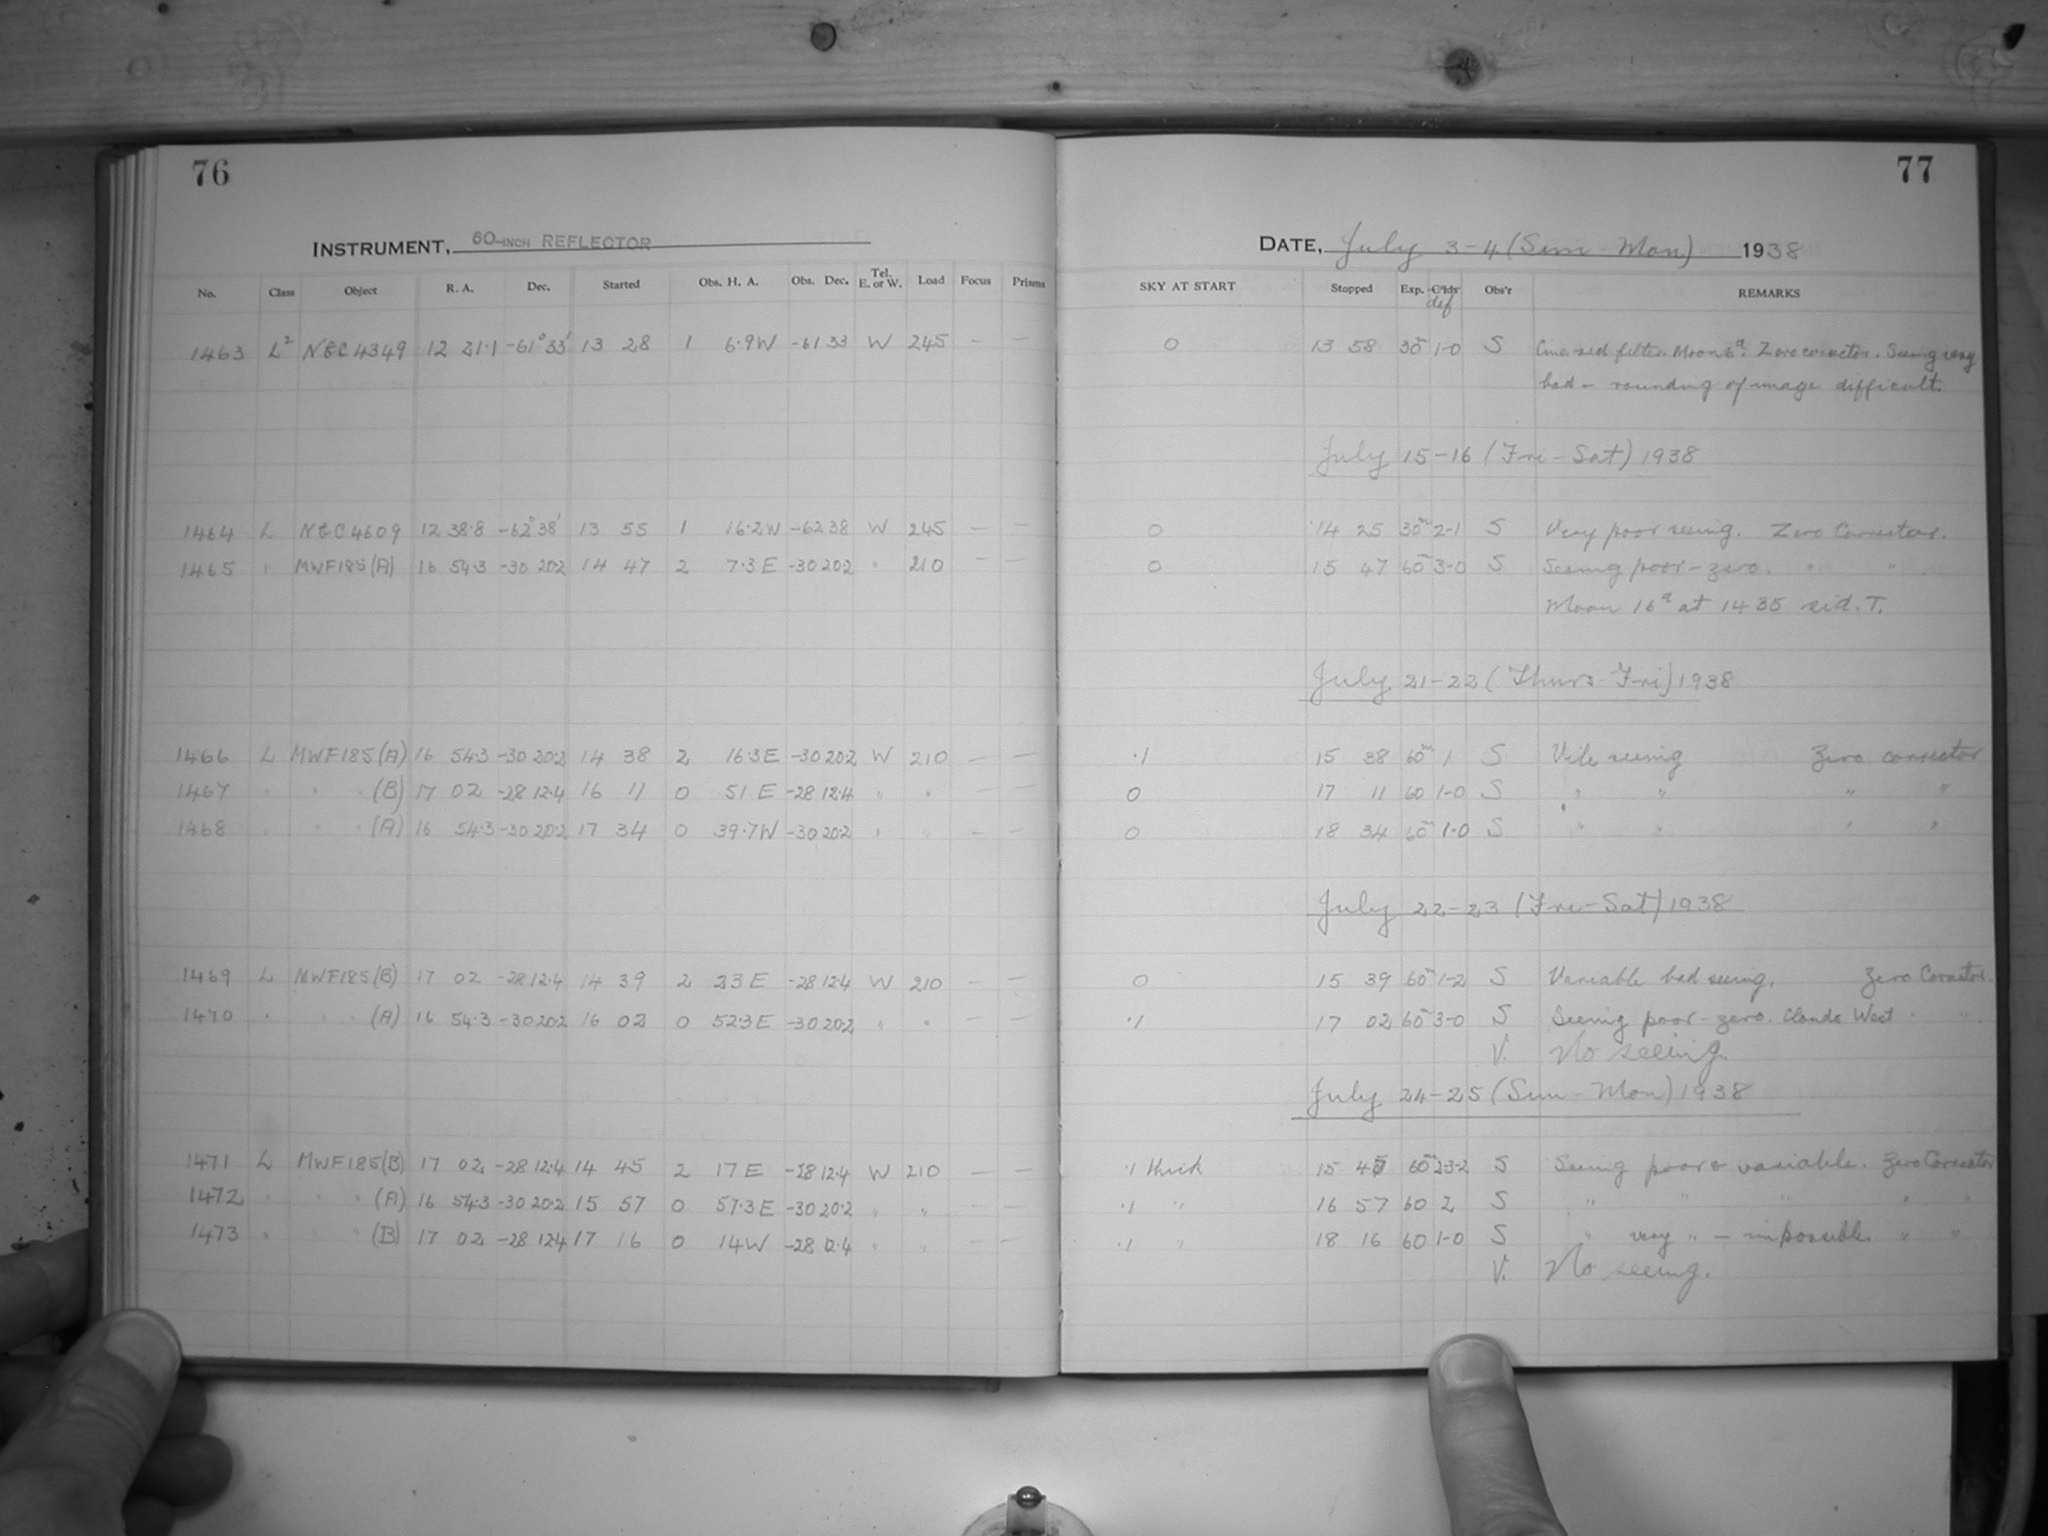 76
INSTRUMENT, 60-INCH REFLECTOR
No. Class Object R. A. Dec. Started Obs. H. A. Obs. Dec. Tel. E. or W. Load Focus Prisms
1463 L² NGC 4349 12 21.1 -61° 33' 13 28 1 6.9W -61 33 W 245 - -
1464 L NGC 4609 12 38.8 -62° 38' 13 55 1 16.2W -62 38 W 245 - -
1465 " MWF185(A) 16 54.3 -30 20.2 14 47 2 7.3 E -30 20.2 " 210 - -
1466 L MWF185(A) 16 54.3 -30 20.2 14 38 2 16.3E -30 20.2 W 210 - -
1467 " " " (B) 17 02 -28 12.4 16 11 0 51 E -28 12.4 " " - -
1468 " " " (A) 16 54.3 -30 20.2 17 34 0 39.7W -30 20.2 " " - -
1469 L MWF185(B) 17 02 -28 12.4 14 39 2 23 E -28 12.4 W 210 - -
1470 " " " (A) 16 54.3 -30 20.2 16 02 0 52.3E -30 20.2 " " - -
1471 L MWF185(B) 17 02 -28 12.4 14 45 2 17 E -28 12.4 W 210 - -
1472 " " " (A) 16 54.3 -30 20.2 15 57 0 57.3E -30 20.2 " " - -
1473 " " " (B) 17 02 -28 12.4 17 16 0 14W -28 12.4 " " - -
77
DATE, July 3-4 (Sun-Mon) 1938
SKY AT START Stopped Exp. C'lds def Obs'r REMARKS
0 13 58 30m 1-0 S Cine-red filter. Moon 6d. Zero corrector. Seeing very
bad - rounding of image difficult.
July 15-16 (Fri-Sat) 1938
0 14 25 30m 2-1 S Very poor seeing. Zero Corrector.
0 15 47 60m 3-0 S Seeing poor - zero. " "
Moon 16d at 14 35 sid. T.
July 21-22 (Thurs-Fri) 1938
.1 15 38 60m 1 S Vile seeing Zero corrector
0 17 11 60 1-0 S " " " "
0 18 34 60m 1-0 S " " " "
July 22-23 (Fri-Sat) 1938
0 15 39 60m 1-2 S Variable bad seeing. Zero Corrector.
.1 17 02 60m 3-0 S Seeing poor - zero. Clouds West " "
V. No seeing.
July 24-25 (Sun-Mon) 1938
.1 thick 15 45 60m 2-3-2 S Seeing poor & variable. Zero Corrector
.1 " 16 57 60 2 S " " " " "
.1 " 18 16 60 1-0 S " very " - impossible " "
V. No seeing.